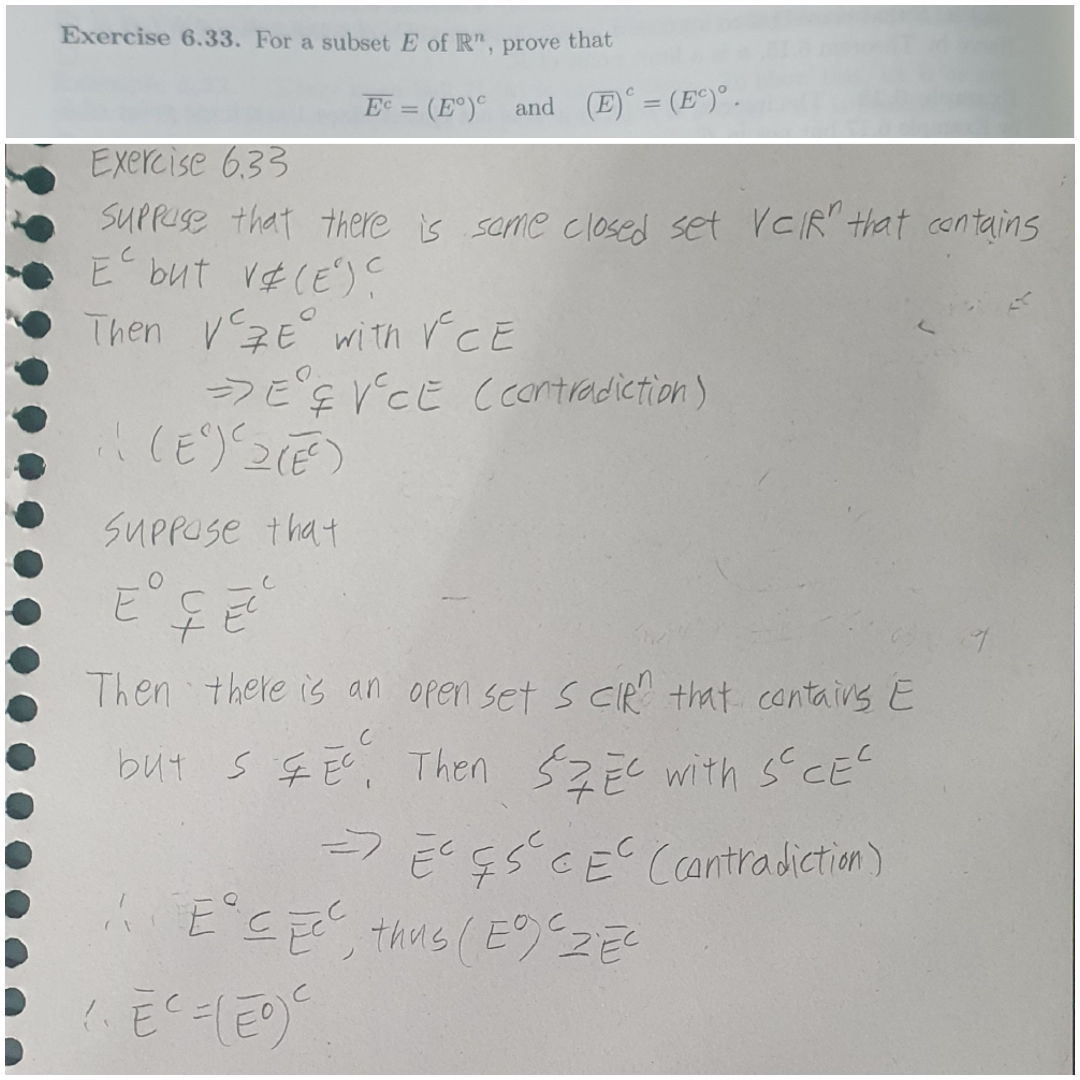 Exercise 6.33. For a subset E of ℝⁿ, prove that
\overline{Eᶜ} = (E°)ᶜ and (\overline{E})ᶜ = (Eᶜ)°.
Exercise 6.33
Suppose that there is some closed set V⊂ℝⁿ that contains
Eᶜ but V⊄(E°)ᶜ.
Then Vᶜ⊋E° with Vᶜ⊂E
⇒ E°⊊Vᶜ⊂E (contradiction)
∴ (E°)ᶜ⊇(\overline{Eᶜ})
Suppose that
E° ⊊ \overline{Eᶜ}ᶜ
Then there is an open set S⊂ℝⁿ that contains E
but S ⊊ \overline{Eᶜ}ᶜ. Then Sᶜ⊋\overline{E}ᶜ with Sᶜ⊂Eᶜ
⇒ \overline{E}ᶜ⊊Sᶜ⊂Eᶜ (contradiction)
∴ E°⊆\overline{Eᶜ}ᶜ, thus (E°)ᶜ⊇\overline{Eᶜ}
∴ \overline{E}ᶜ=(\overline{E°})ᶜ